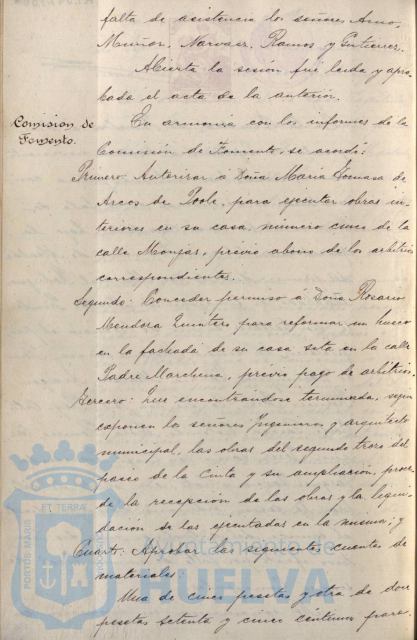 falta de asistencia los señores Arno,
Muñoz, Narvaez, Ramos y Gutierrez.
Abierta la sesión fué leida y apro-
bada el acta de la anterior.
Comisión de
Fomento.
En armonía con los informes de la
Comisión de Fomento, se acordó:
Primero: Autorizar á Doña María Tomasa de
Arcos de Poole, para ejecutar obras in-
teriores en su casa, número cinco de la
calle Monjas, previo abono de los arbitrios
correspondientes.
Segundo: Conceder permiso á Doña Rosario
Mendoza Quintero, para reformar un hueco
en la fachada de su casa sita en la calle
Padre Marchena, previo pago de arbitrios.
Tercero: Que encontrándose terminada, según
exponen los señores Ingeniero y arquitecto
municipal, las obras del segundo trozo del
paseo de la Cinta y su ampliación, proce-
de la recepción de las obras y la liqui-
dación de las ejecutadas en la misma; y
Cuarto: Aprobar las siguientes cuentas de
materiales:
Una de cinco pesetas y otra de doce
pesetas setenta y cinco céntimos para
PORTUS MARIS
ET TERRAE
Ayuntamiento de
HUELVA